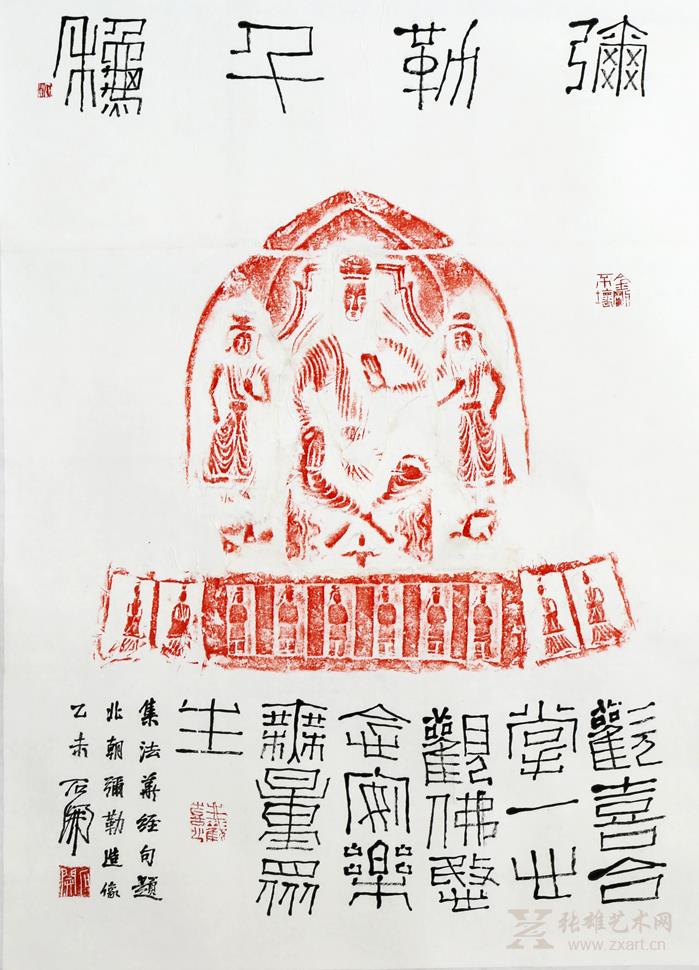 彌勒千龝
金剛不壞
歡喜合
掌一心
觀佛愍
念安樂
無量眾
生
集法華經句題
北朝彌勒造像
乙未 石開
张雄艺术网
www.zxart.cn